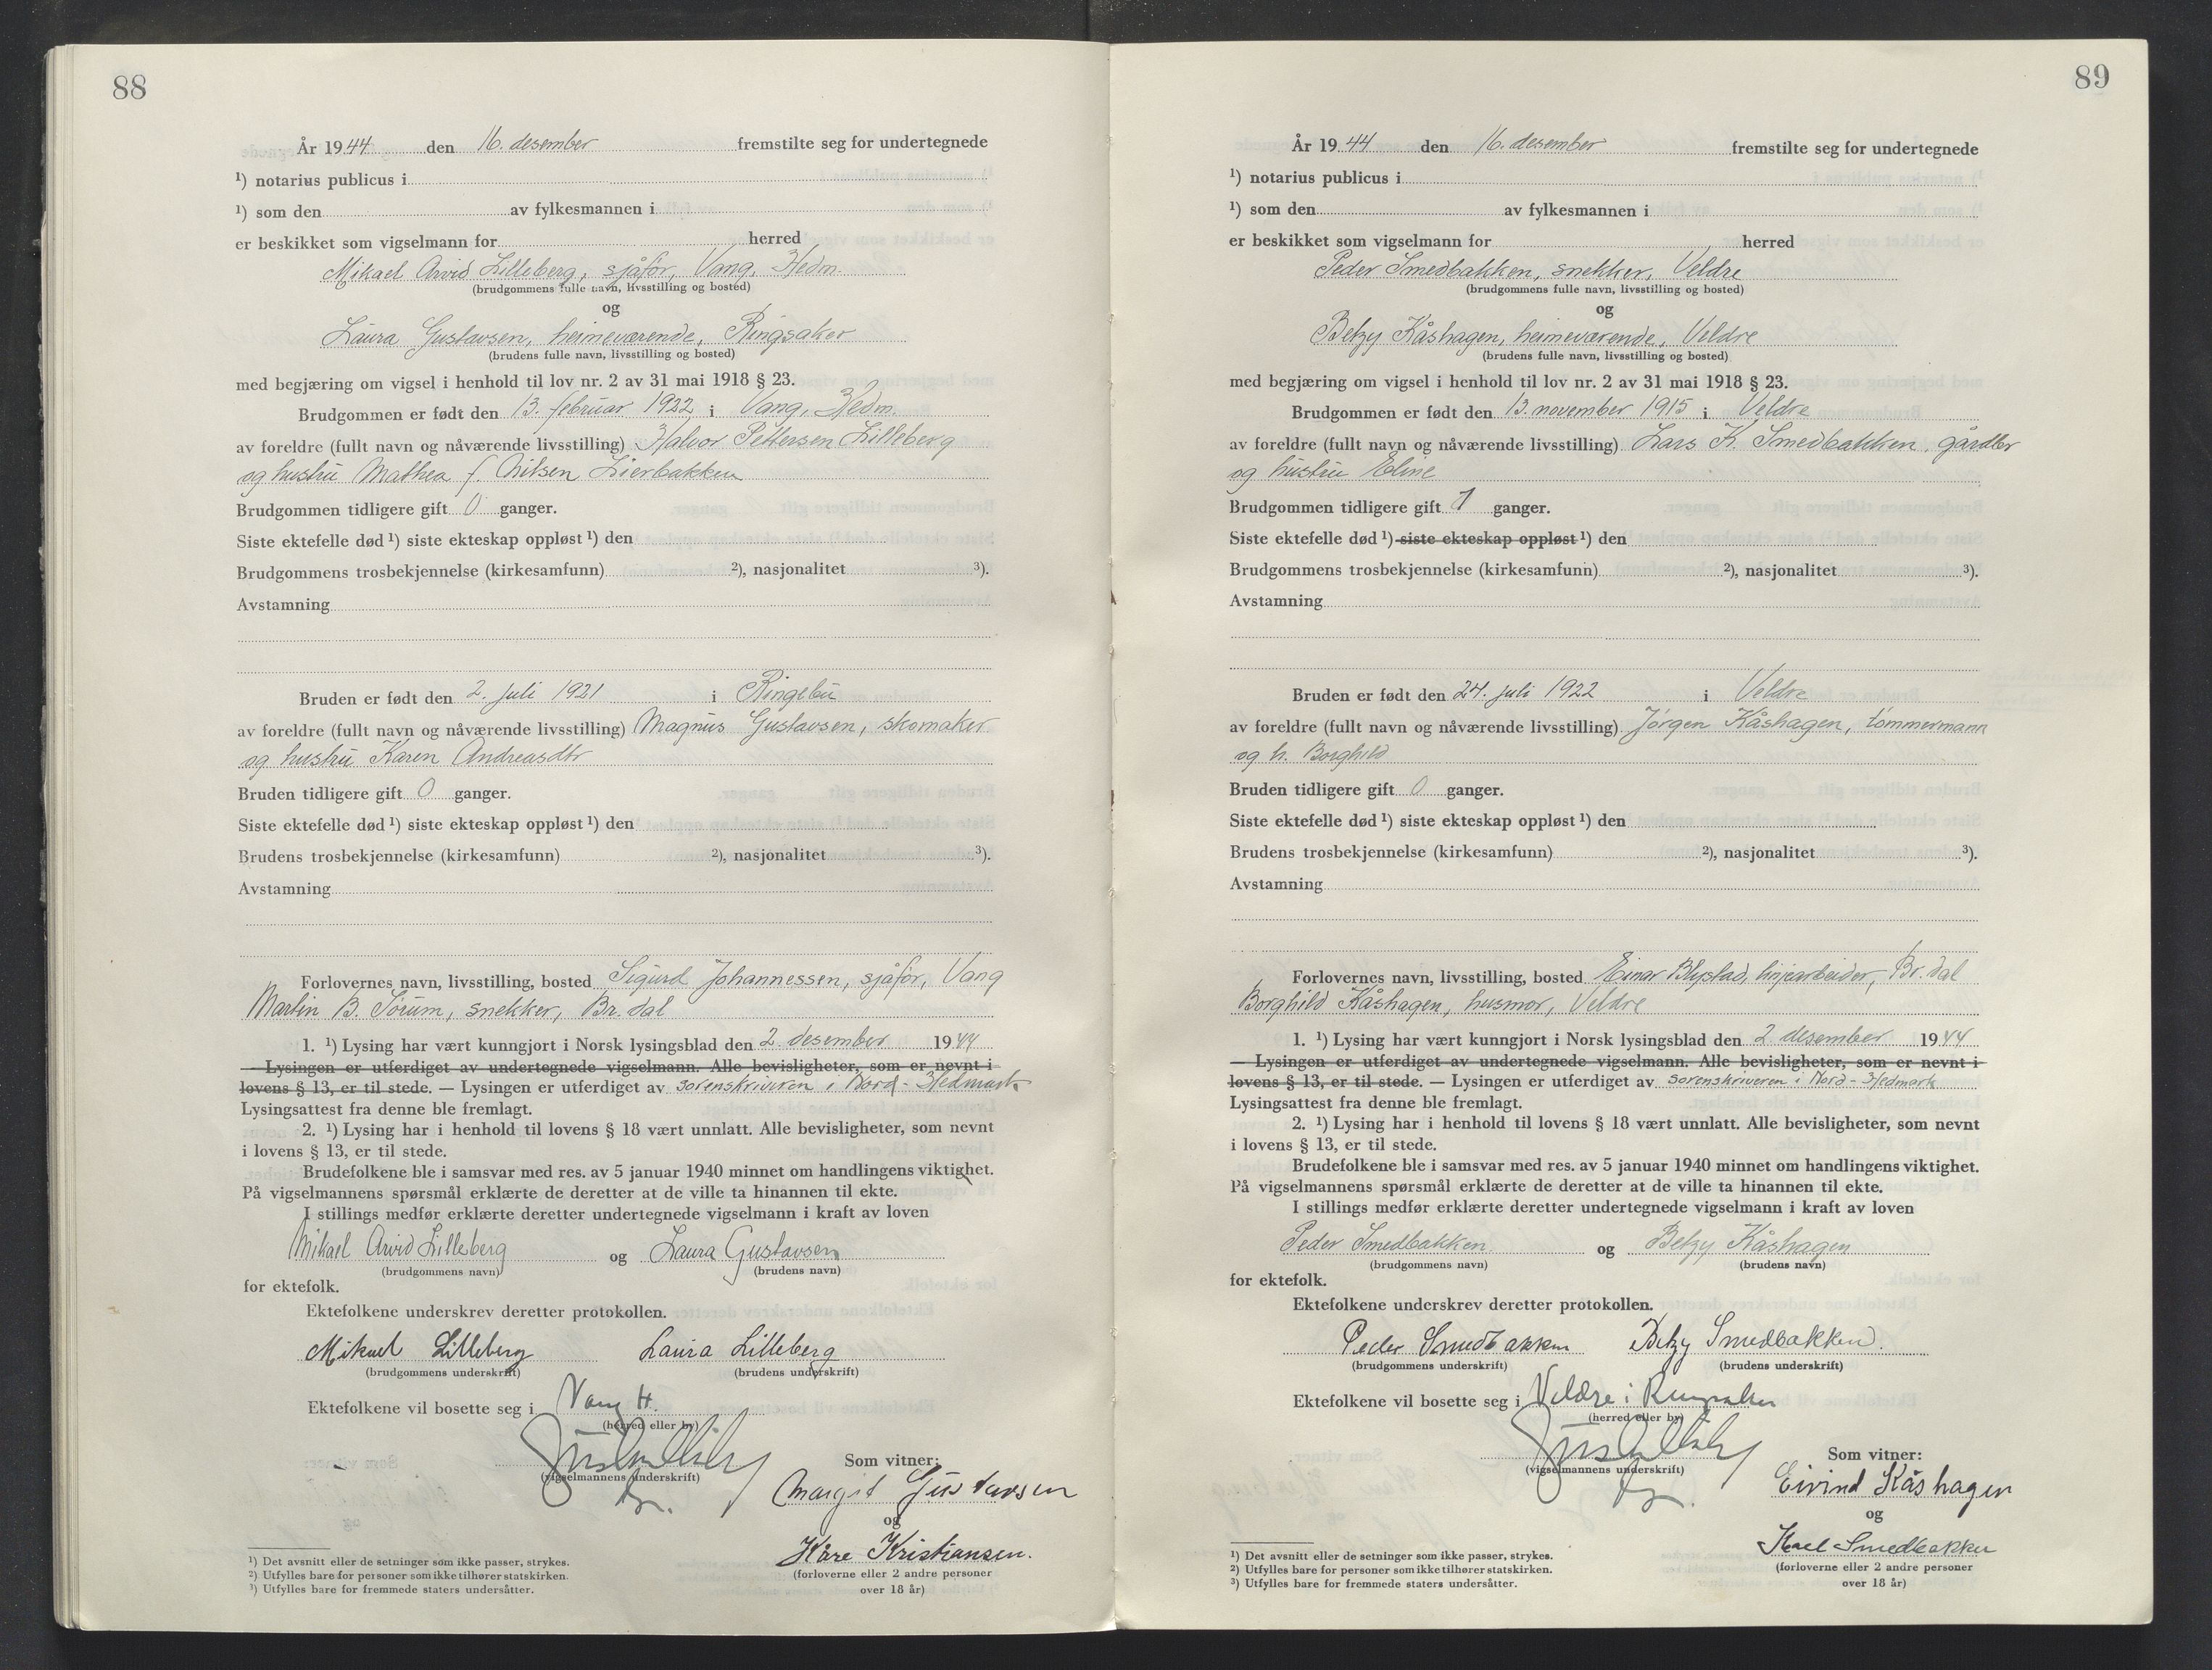 88
År 1944 den 16. desember fremstilte seg for undertegnede
¹) notarius publicus i
¹) som den av fylkesmannen i
er beskikket som vigselmann for herred
Mikael Arvid Lilleberg, sjåför, Vang, Hedm.
(brudgommens fulle navn, livsstilling og bosted)
og
Laura Gustavsen, heimeværende, Ringsaker
(brudens fulle navn, livsstilling og bosted)
med begjæring om vigsel i henhold til lov nr. 2 av 31 mai 1918 § 23.
Brudgommen er født den 13. februar 1922 i Vang, Hedm.
av foreldre (fullt navn og nåværende livsstilling) Halvor Pettersen Lilleberg
og hustru Mathea f. Nilsen Lierbakken
Brudgommen tidligere gift 0 ganger.
Siste ektefelle død ¹) siste ekteskap oppløst ¹) den
Brudgommens trosbekjennelse (kirkesamfunn) ²), nasjonalitet ³).
Avstamning
Bruden er født den 2. juli 1921 i Ringebu
av foreldre (fullt navn og nåværende livsstilling) Magnus Gustavsen, skomaker
og hustru Karen Andreasdtr
Bruden tidligere gift 0 ganger.
Siste ektefelle død ¹) siste ekteskap oppløst ¹) den
Brudens trosbekjennelse (kirkesamfunn) ²), nasjonalitet ³).
Avstamning
Forlovernes navn, livsstilling, bosted Sigurd Johannessen, sjåför, Vang
Martin B. Torum, snekker, Br. dal
1. ¹) Lysing har vært kunngjort i Norsk lysingsblad den 2. desember 1944
— Lysingen er utferdiget av undertegnede vigselmann. Alle bevisligheter, som er nevnt i
lovens § 13, er til stede. — Lysingen er utferdiget av sorenskriveren i Nord-Hedmark
Lysingsattest fra denne ble fremlagt.
2. ¹) Lysing har i henhold til lovens § 18 vært unnlatt. Alle bevisligheter, som nevnt
i lovens § 13, er til stede.
Brudefolkene ble i samsvar med res. av 5 januar 1940 minnet om handlingens viktighet.
På vigselmannens spørsmål erklærte de deretter at de ville ta hinannen til ekte.
I stillings medfør erklærte deretter undertegnede vigselmann i kraft av loven
Mikael Arvid Lilleberg og Laura Gustavsen
(brudgommens navn) (brudens navn)
for ektefolk.
Ektefolkene underskrev deretter protokollen.
Mikael Lilleberg Laura Lilleberg
(brudgommens underskrift) (brudens underskrift)
Ektefolkene vil bosette seg i Vang H.
(herred eller by)
Som vitner:
(vigselmannens underskrift)
Margit Gustavsen
og
Kåre Kristiansen.
(forloverne eller 2 andre personer
over 18 år)
¹) Det avsnitt eller de setninger som ikke passer, strykes.
²) Utfylles bare for personer som ikke tilhører statskirken.
³) Utfylles bare for fremmede staters undersåtter.
89
År 1944 den 16. desember fremstilte seg for undertegnede
¹) notarius publicus i
¹) som den av fylkesmannen i
er beskikket som vigselmann for herred
Peder Smedbakken, snekker, Veldre
(brudgommens fulle navn, livsstilling og bosted)
og
Betzy Kåshagen, heimeværende, Veldre
(brudens fulle navn, livsstilling og bosted)
med begjæring om vigsel i henhold til lov nr. 2 av 31 mai 1918 § 23.
Brudgommen er født den 13. november 1915 i Veldre
av foreldre (fullt navn og nåværende livsstilling) Lars K. Smedbakken, gårdbr
og hustru Eline
Brudgommen tidligere gift 1 ganger.
Siste ektefelle død ¹) siste ekteskap oppløst ¹) den
Brudgommens trosbekjennelse (kirkesamfunn) ²), nasjonalitet ³).
Avstamning
Bruden er født den 24. juli 1922 i Veldre
av foreldre (fullt navn og nåværende livsstilling) Jörgen Kåshagen, tömmermann
og h. Borghild
Bruden tidligere gift 0 ganger.
Siste ektefelle død ¹) siste ekteskap oppløst ¹) den
Brudens trosbekjennelse (kirkesamfunn) ²), nasjonalitet ³).
Avstamning
Forlovernes navn, livsstilling, bosted Einar Blystad, linjearbeider, Br. dal
Borghild Kåshagen, husmor, Veldre
1. ¹) Lysing har vært kunngjort i Norsk lysingsblad den 2. desember 1944
— Lysingen er utferdiget av undertegnede vigselmann. Alle bevisligheter, som er nevnt i
lovens § 13, er til stede. — Lysingen er utferdiget av sorenskriveren i Nord-Hedmark
Lysingsattest fra denne ble fremlagt.
2. ¹) Lysing har i henhold til lovens § 18 vært unnlatt. Alle bevisligheter, som nevnt
i lovens § 13, er til stede.
Brudefolkene ble i samsvar med res. av 5 januar 1940 minnet om handlingens viktighet.
På vigselmannens spørsmål erklærte de deretter at de ville ta hinannen til ekte.
I stillings medfør erklærte deretter undertegnede vigselmann i kraft av loven
Peder Smedbakken og Betzy Kåshagen
(brudgommens navn) (brudens navn)
for ektefolk.
Ektefolkene underskrev deretter protokollen.
Peder Smedbakken Betzy Smedbakken.
(brudgommens underskrift) (brudens underskrift)
Ektefolkene vil bosette seg i Veldre i Ringsaker
(herred eller by)
Som vitner:
(vigselmannens underskrift)
Eivind Kåshagen
og
Karl Smedbakken
(forloverne eller 2 andre personer
over 18 år)
¹) Det avsnitt eller de setninger som ikke passer, strykes.
²) Utfylles bare for personer som ikke tilhører statskirken.
³) Utfylles bare for fremmede staters undersåtter.